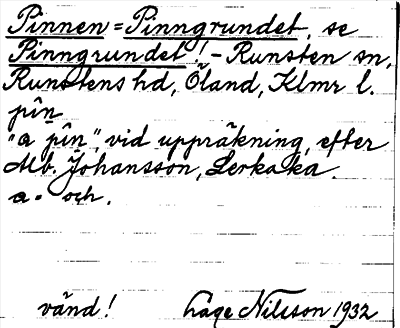 Pinnen = Pinngrundet, se
Pinngrundet! - Runsten sn,
Runstens hd, Öland, Klmr l.
pin
"a pin", vid uppräkning, efter
Alb. Johansson, Lerkaka.
a = och.
vänd! Lage Nilsson 1932